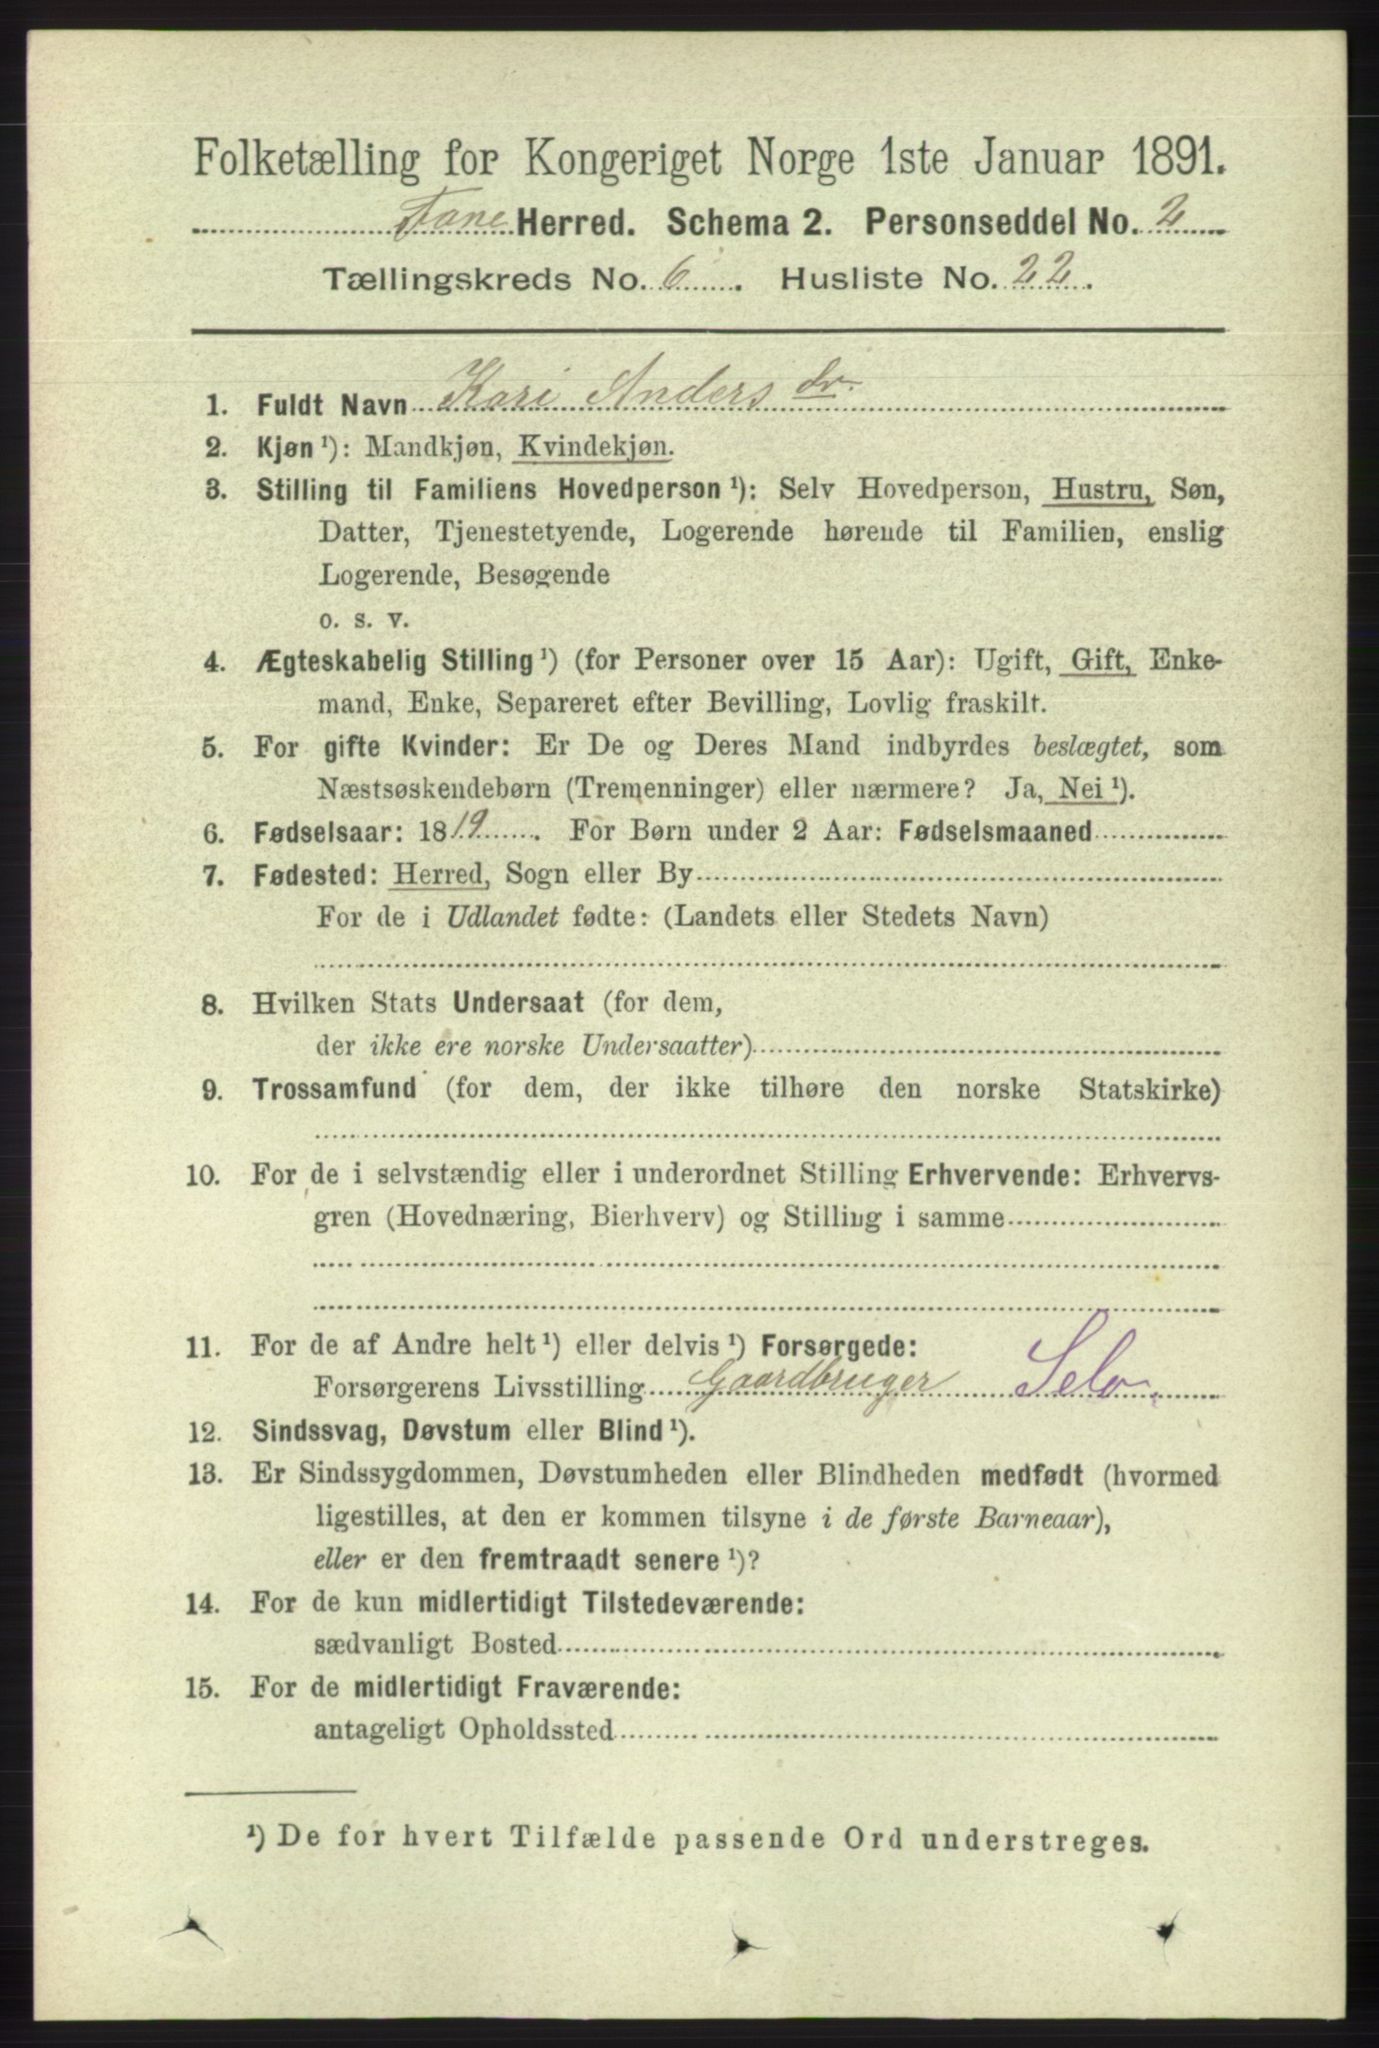 Folketælling for Kongeriget Norge 1ste Januar 1891.
Fane Herred. Schema 2. Personseddel No. 2
Tællingskreds No. 6. Husliste No. 22.
1. Fuldt Navn Kari Anders dr.
2. Kjøn ¹): Mandkjøn, Kvindekjøn.
3. Stilling til Familiens Hovedperson ¹): Selv Hovedperson, Hustru, Søn,
Datter, Tjenestetyende, Logerende hørende til Familien, enslig
Logerende, Besøgende
o. s. v.
4. Ægteskabelig Stilling ¹) (for Personer over 15 Aar): Ugift, Gift, Enke-
mand, Enke, Separeret efter Bevilling, Lovlig fraskilt.
5. For gifte Kvinder: Er De og Deres Mand indbyrdes beslægtet, som
Næstsøskendebørn (Tremenninger) eller nærmere? Ja, Nei ¹).
6. Fødselsaar: 1819. For Børn under 2 Aar: Fødselsmaaned
7. Fødested: Herred, Sogn eller By
For de i Udlandet fødte: (Landets eller Stedets Navn)
8. Hvilken Stats Undersaat (for dem,
der ikke ere norske Undersaatter)
9. Trossamfund (for dem, der ikke tilhøre den norske Statskirke)
10. For de i selvstændig eller i underordnet Stilling Erhvervende: Erhvervs-
gren (Hovednæring, Bierhverv) og Stilling i samme
11. For de af Andre helt ¹) eller delvis ¹) Forsørgede:
Forsørgerens Livsstilling Gaardbruger Selv.
12. Sindssvag, Døvstum eller Blind ¹).
13. Er Sindssygdommen, Døvstumheden eller Blindheden medfødt (hvormed
ligestilles, at den er kommen tilsyne i de første Barneaar),
eller er den fremtraadt senere ¹)?
14. For de kun midlertidigt Tilstedeværende:
sædvanligt Bosted
15. For de midlertidigt Fraværende:
antageligt Opholdssted
¹) De for hvert Tilfælde passende Ord understreges.